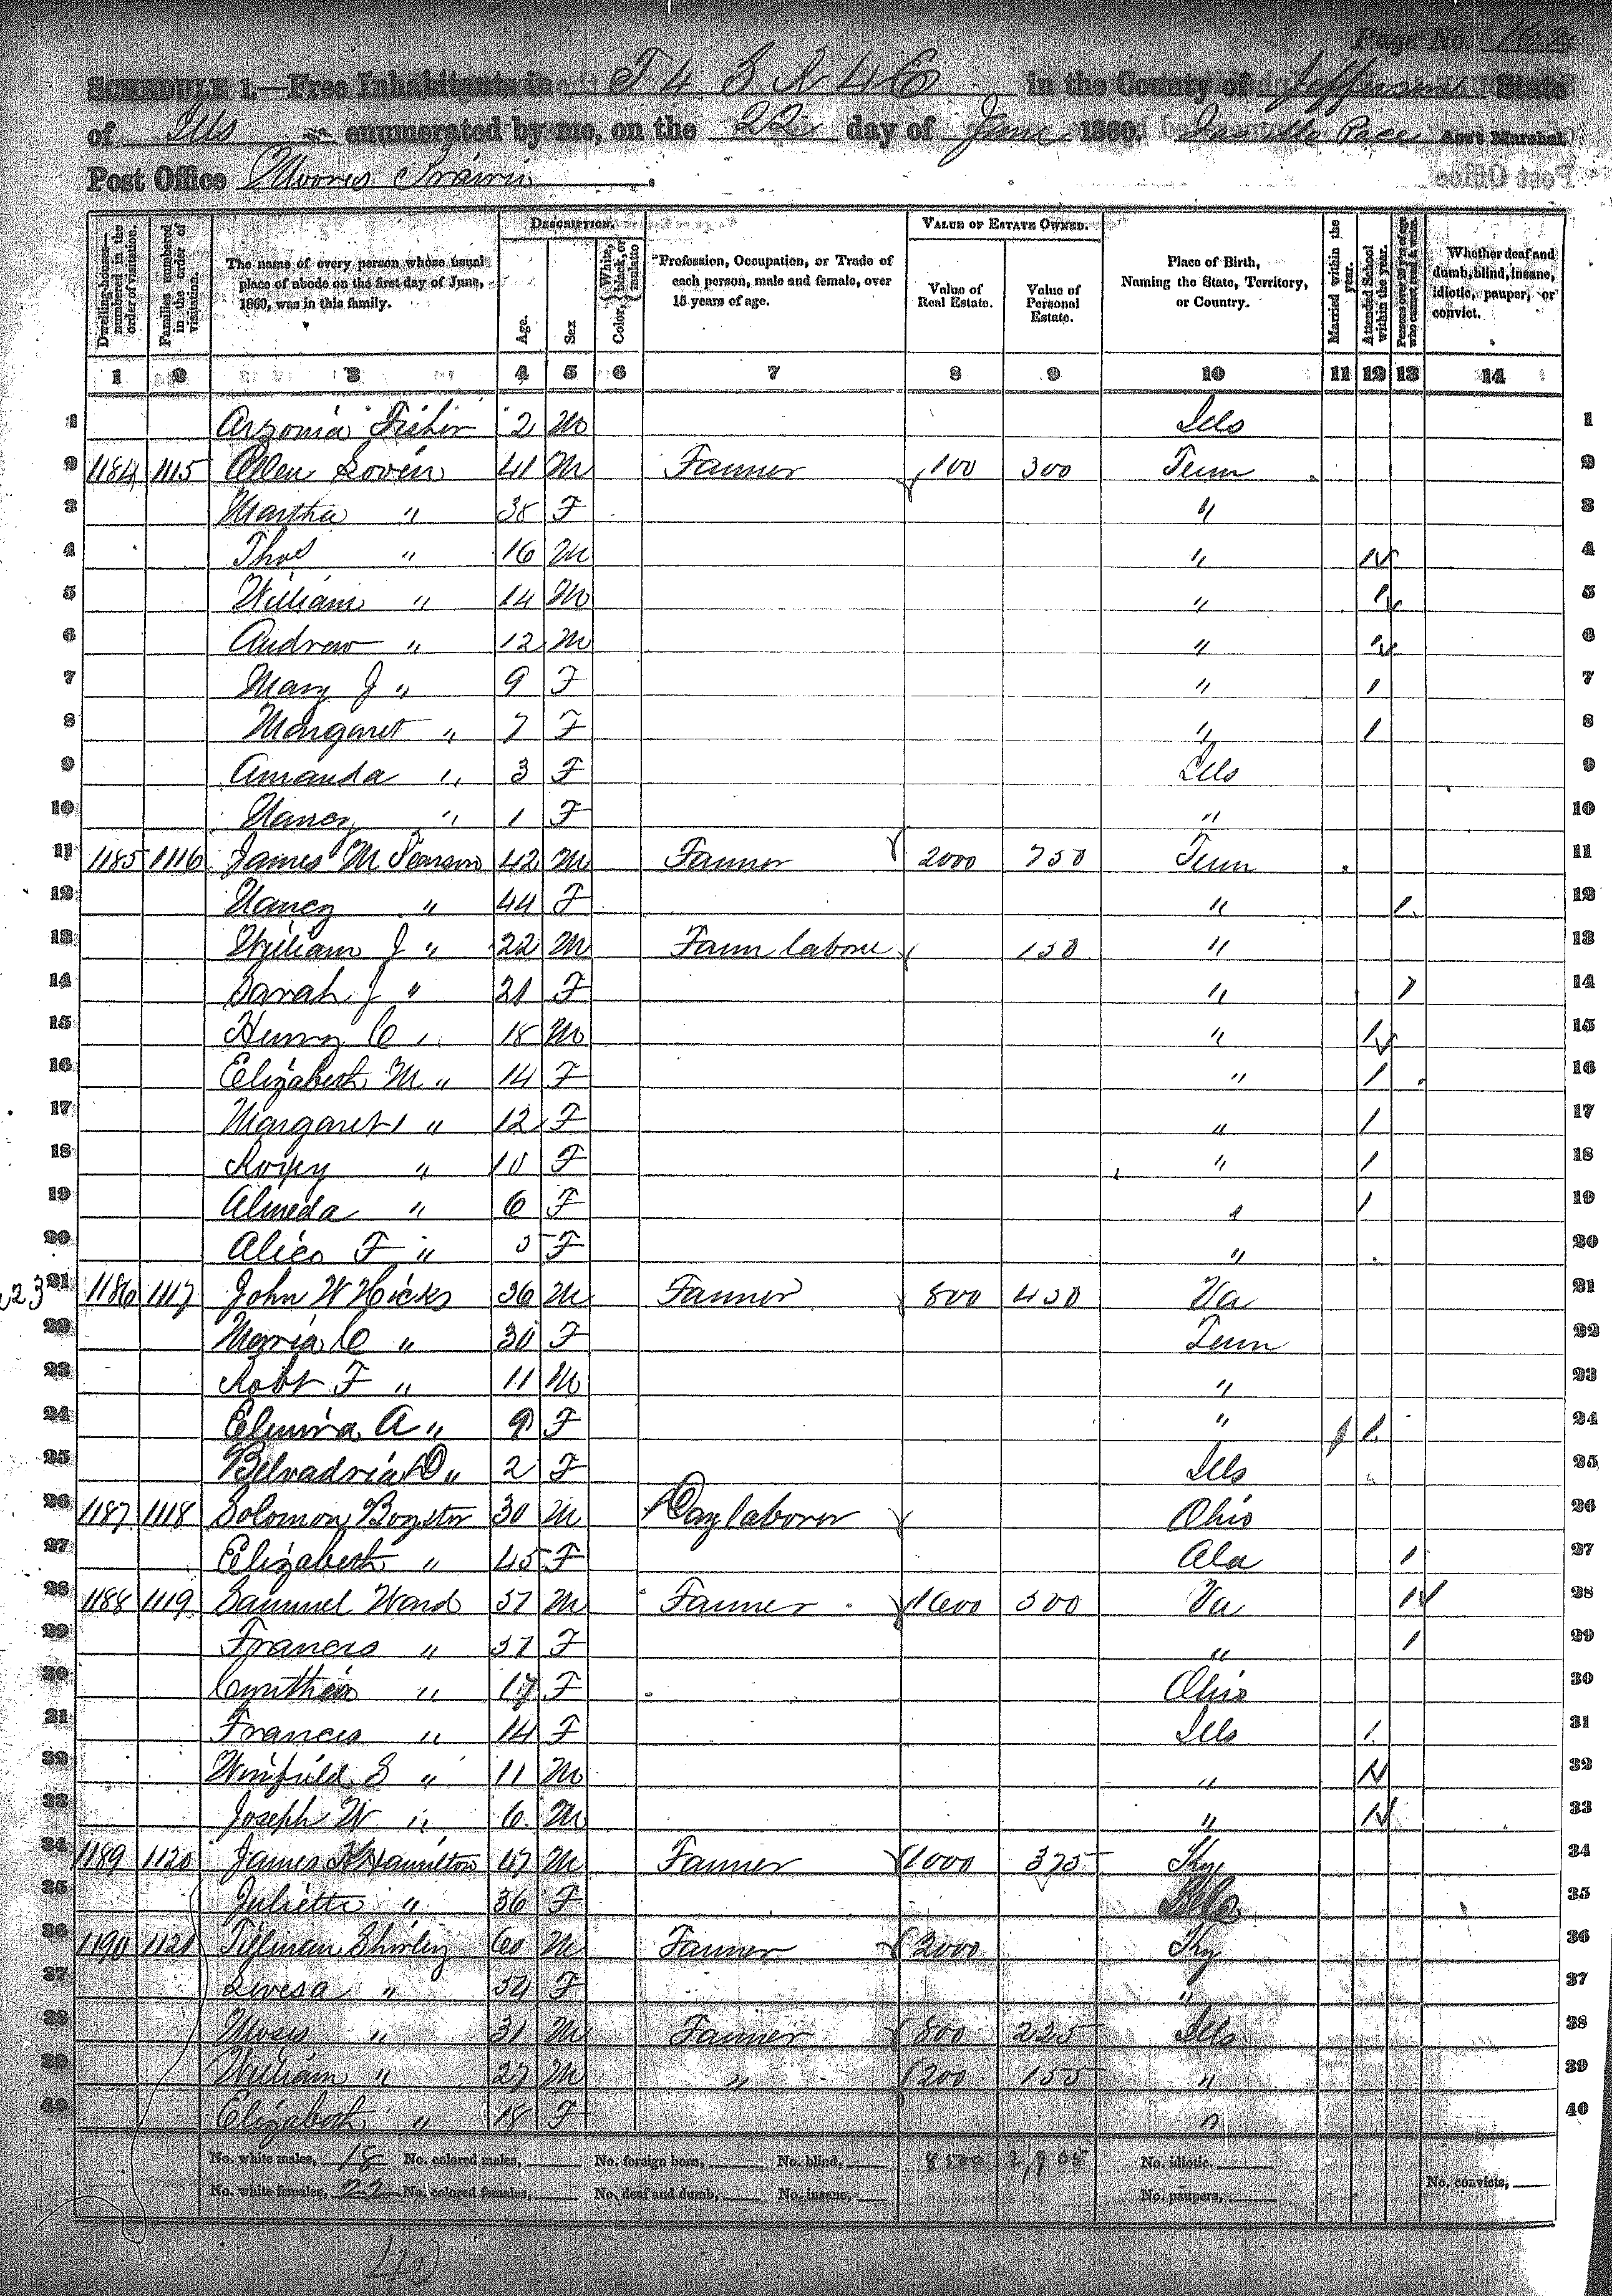 Page No. 162
SCHEDULE 1.—Free Inhabitants in T 4 S R 4 E in the County of Jefferson State
of Ills enumerated by me, on the 22 day of June 1860. Pace Ass't Marshal
Post Office Moores Prairie.
Dwelling-houses—numbered in the order of visitation.
Families numbered in the order of visitation.
The name of every person whose usual place of abode on the first day of June, 1860, was in this family.
DESCRIPTION.
Age.
Sex
Color, White, black, or mulatto
Profession, Occupation, or Trade of each person, male and female, over 15 years of age.
VALUE OF ESTATE OWNED.
Value of Real Estate.
Value of Personal Estate.
Place of Birth, Naming the State, Territory, or Country.
Married within the year.
Attended School within the year.
Persons over 20 y'rs of age who cannot read & write.
Whether deaf and dumb, blind, insane, idiotic, pauper, or convict.
1 2 3 4 5 6 7 8 9 10 11 12 13 14
1 Arzonia Fisher 2 M Ills 1
2 1184 1115 Allen Lovin 41 M Farmer 100 300 Tenn 2
3 Martha " 38 F " 3
4 Thos " 16 M " 1 4
5 William " 14 M " 1 5
6 Andrew " 12 M " 1 6
7 Mary J " 9 F " 1 7
8 Margaret " 7 F " 1 8
9 Amanda " 3 F Ills 9
10 Nancy " 1 F " 10
11 1185 1116 James M Pearson 42 M Farmer 2000 750 Tenn 11
12 Nancy " 44 F " 1 12
13 William J " 22 M Farm labore 150 " 13
14 Sarah J " 21 F " 1 14
15 Henry C " 18 M " 1 15
16 Elizabeth M " 14 F " 1 16
17 Margaret " 12 F " 1 17
18 Roxy " 10 F " 1 18
19 Almeda " 6 F " 1 19
20 Alice F " 5 F " 20
23 21 1186 1117 John W Hicks 36 M Farmer 800 450 Va 21
22 Maria C " 30 F Tenn 22
23 Robt F " 11 M " 23
24 Elmira A " 9 F " 1 24
25 D " 2 F Ills 25
26 1187 1118 Solomon 30 M Day laborer Ohio 26
27 Elizabeth " 45 F Ala 1 27
28 1188 1119 Samuel Ward 57 M Farmer 1600 500 Va 1 28
29 Francis " 51 F " 1 29
30 Cynthia " 17 F Ohio 30
31 Francis " 14 F Ills 1 31
32 Winfield S " 11 M " 1 32
33 Joseph W " 6 M " 1 33
34 1189 1120 James Hamilton 47 M Farmer 1000 375 Ky 34
35 Juliette " 36 F 35
36 1190 1121 Tillman Shirley 60 M Farmer 2000 Ky 36
37 " 54 F " 37
38 Moses " 31 M Farmer 800 225 Ills 38
39 William " 27 M " 200 155 " 39
40 Elizabeth " 18 F " 40
No. white males, 18 No. colored males, No. foreign born, No. blind, 8500 2,905 No. idiotic.
No. white females, 22 No. colored females, No. deaf and dumb, No. insane, No. paupers, No. convicts,
40